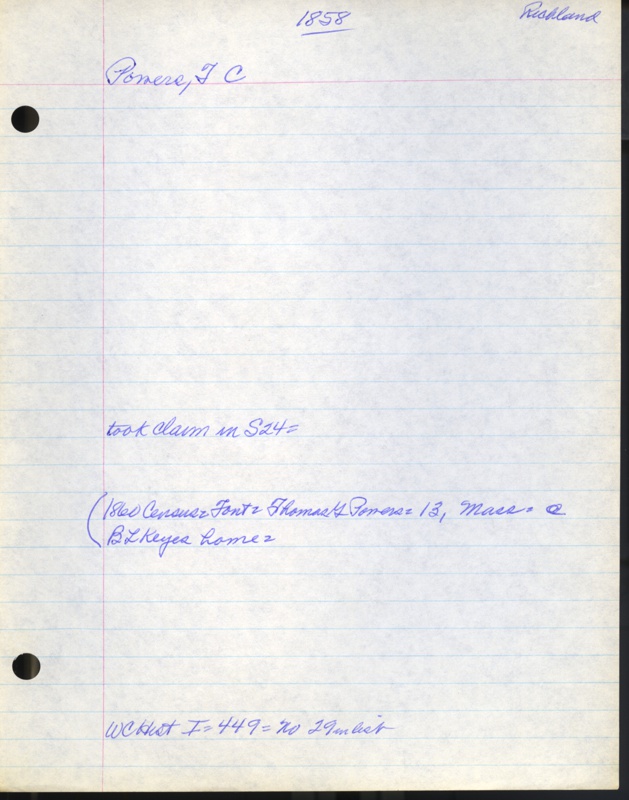 1858
Richland
Powers, T C
took claim in S24=
(1860 Census= Font= Thomas G Powers= 13, Mass= @
BL Keyes home=
WC Hist I= 449= No 29 in list